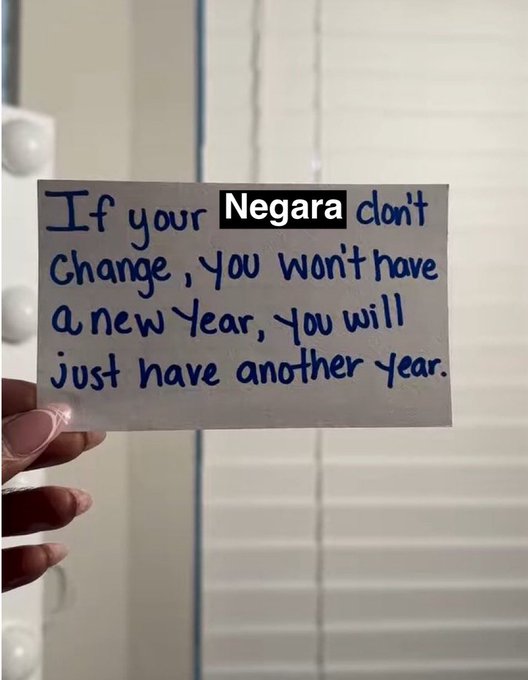 If your Negara don't
change, you won't have
a new year, you will
just have another year.